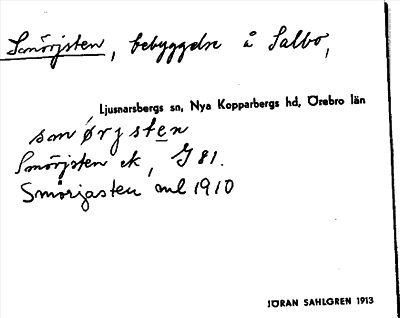 Smörjsten, bebyggelse å Salbo,
Ljusnarsbergs sn, Nya Kopparbergs hd, Örebro län
smørjsten
Smörjsten ek, J 81.
Smörjasten ml 1910
JÖRAN SAHLGREN 1913